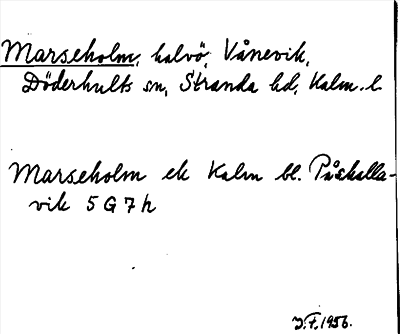 Marseholm, halvö, Vånevik,
Döderhults sn, Stranda hd, Kalm. l.
Marseholm ek Kalm bl. Påskalla-
vik 5 G 7 h
J.F. 1956.